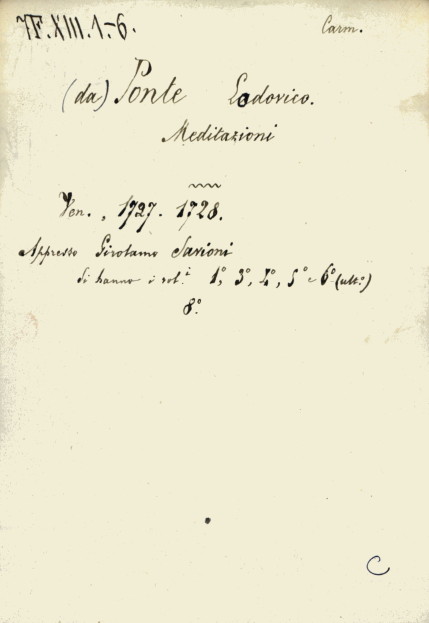 7F.XIII.1-6.
Carm.
(da) Ponte Lodovico.
Meditazioni
Ven., 1727. 1728.
Appresso Girolamo Savioni
Si hanno i vol.i 1°, 3°, 4°, 5° e 6° (ult.°)
8°.
C